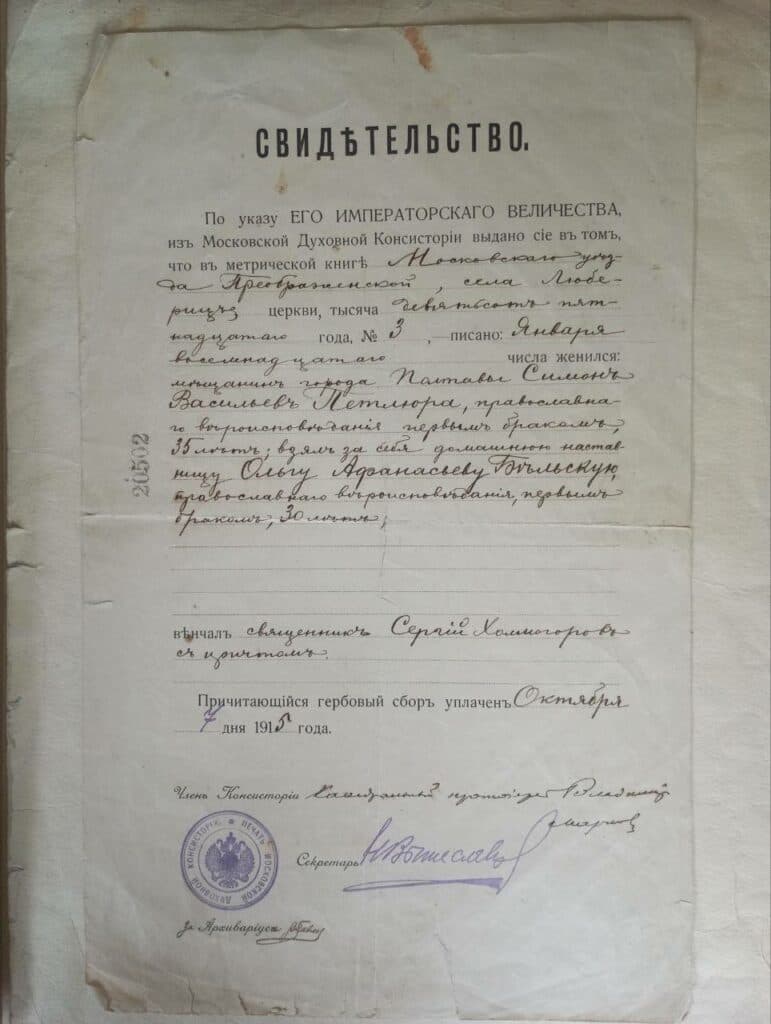 СВИДѢТЕЛЬСТВО.
По указу ЕГО ИМПЕРАТОРСКАГО ВЕЛИЧЕСТВА,
изъ Московской Духовной Консисторіи выдано сіе въ томъ,
что въ метрической книгѣ Московскаго уѣз-
да Преображенской, села Любе-
рицъ церкви, тысяча девятьсотъ пят-
надцатаго года, № 3, писано: Января
восемнадцатаго числа женился:
мѣщанинъ города Полтавы Симонъ
Васильевъ Петлюра, православна-
го вѣроисповѣданія первымъ бракомъ,
35 лѣтъ; взялъ за себя домашнюю настав-
ницу Ольгу Афанасьеву Бѣльскую,
православнаго вѣроисповѣданія, первымъ
бракомъ, 30 лѣтъ;
20502
вѣнчалъ священникъ Сергій Холмогоровъ
съ причтомъ.
Причитающійся гербовый сборъ уплаченъ Октября
7 дня 1915 года.
Членъ Консисторіи Каѳедральный протоіерей Владимір
Марков
ПЕЧАТЬ МОСКОВСКОЙ ДУХОВНОЙ КОНСИСТОРІИ
Секретарь
За Архиваріуса